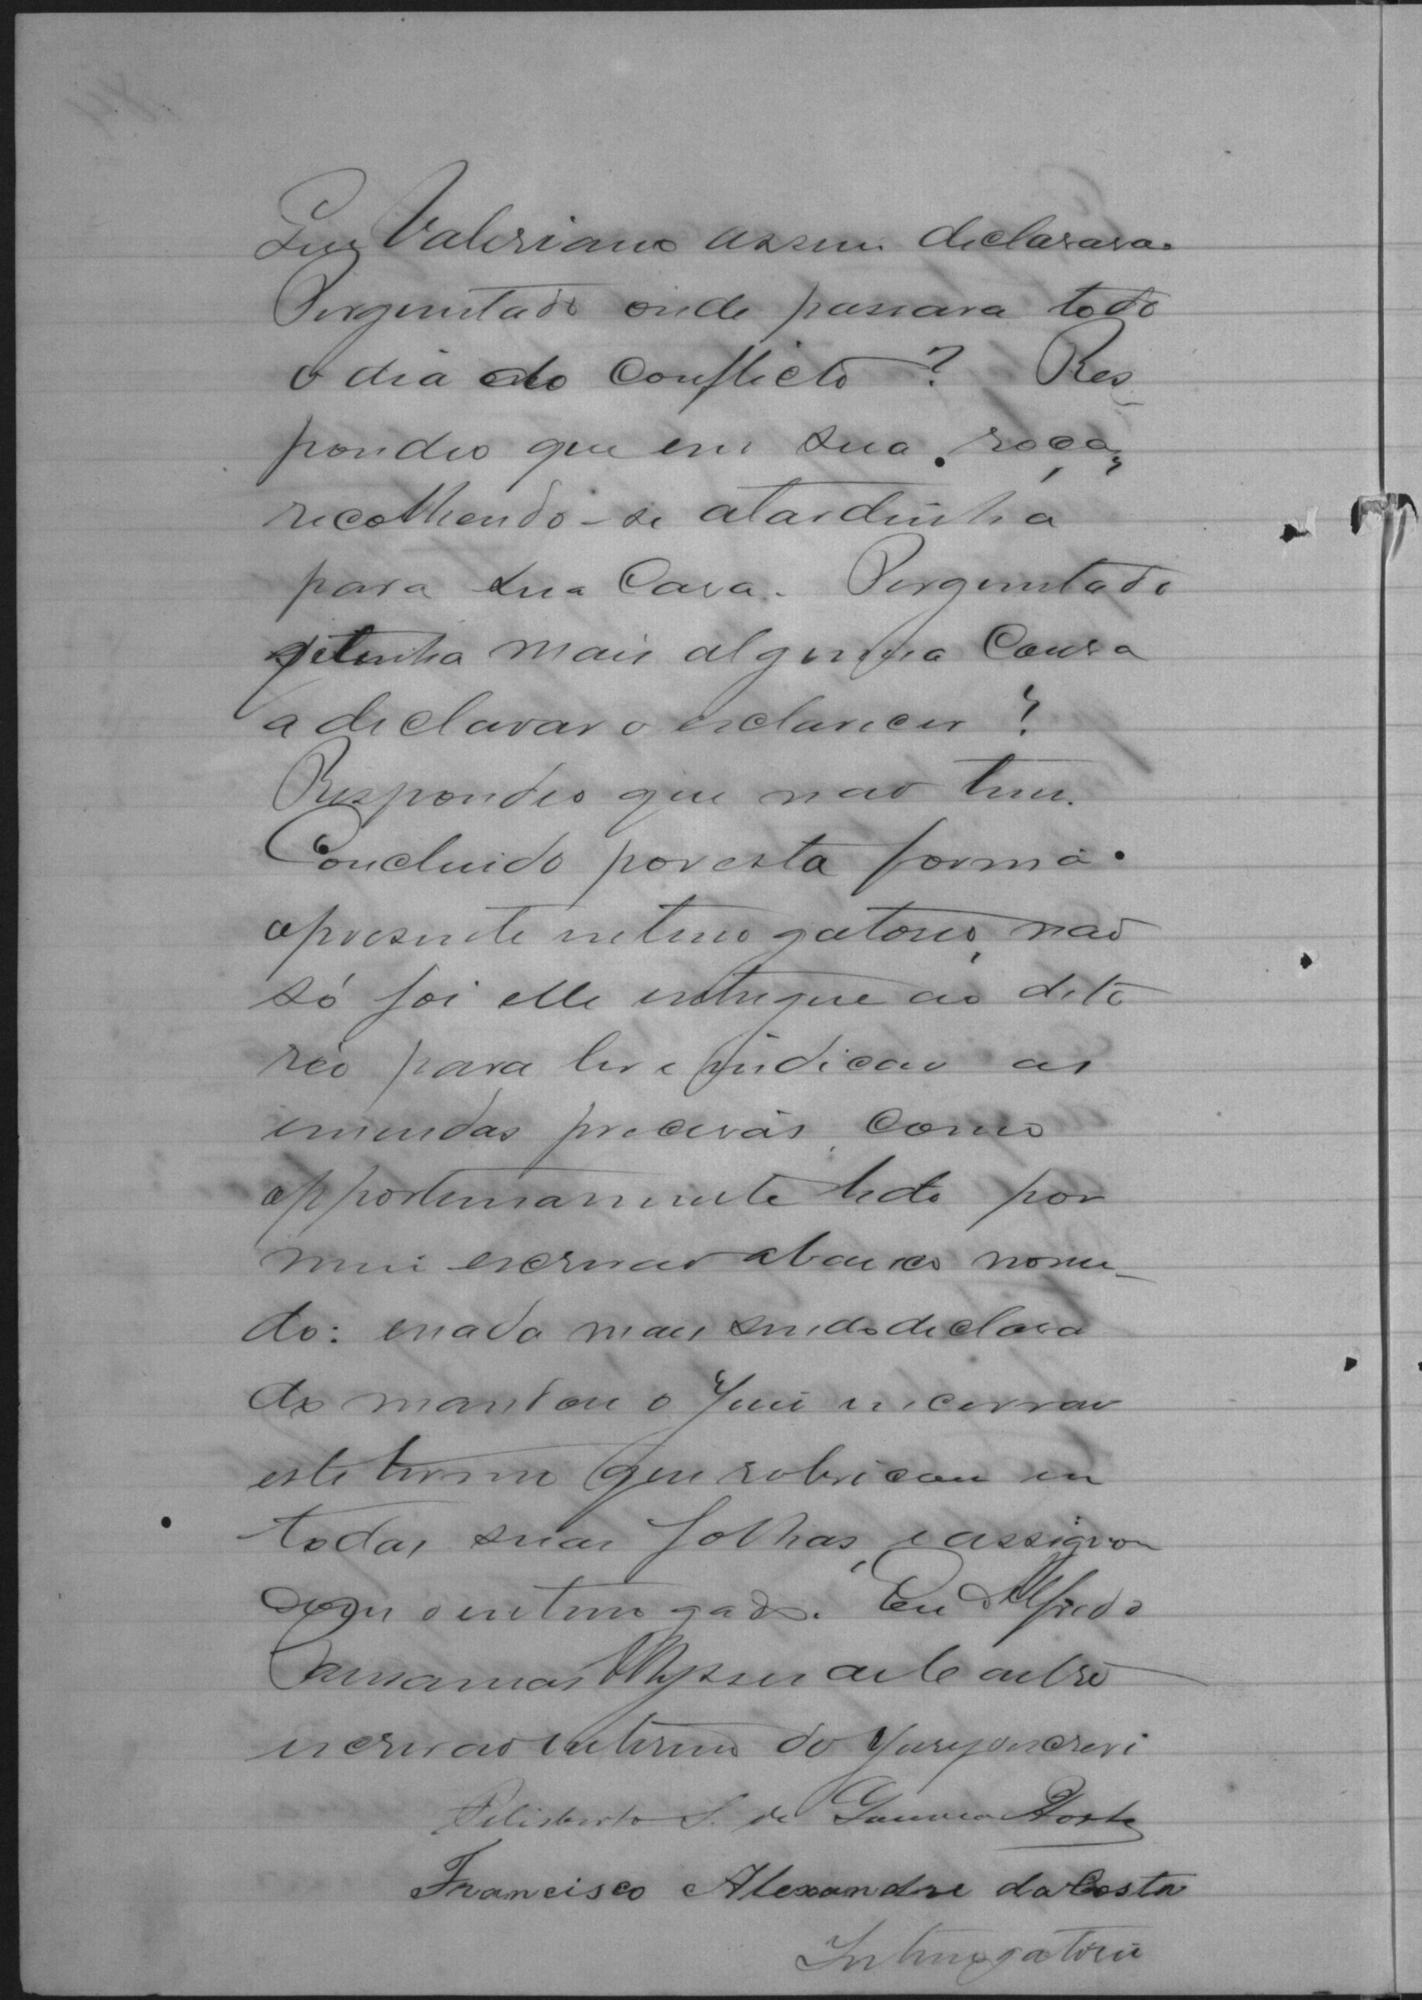 que Valeriano assim declarara.
Perguntado onde passara todo
o dia do conflicto? Res-
pondeo que em sua roça,
recolhendo-se atardinha
para sua casa. Perguntado
se tinha mais alguma cousa
a declarar o esclarecer?
Respondeo que não tem.
Concluido por esta forma
opresente interrogatorio, não
só foi elle entregue ao dito
réo para ler e indicar as
emendas precisas, como
opportunamente lido por
mim escrivão abaixo nomea-
do: e nada mais sendo declara
do mandou o Juiz encerrar
este termo que rubricou em
todas suas folhas, e assignou
com o interrogado. Eu Alfredo
escrivão interino do Jury o escrevi
Felisberto S. de Gouvea Horta
Francisco Alexandre da Costa
Interrogatorio